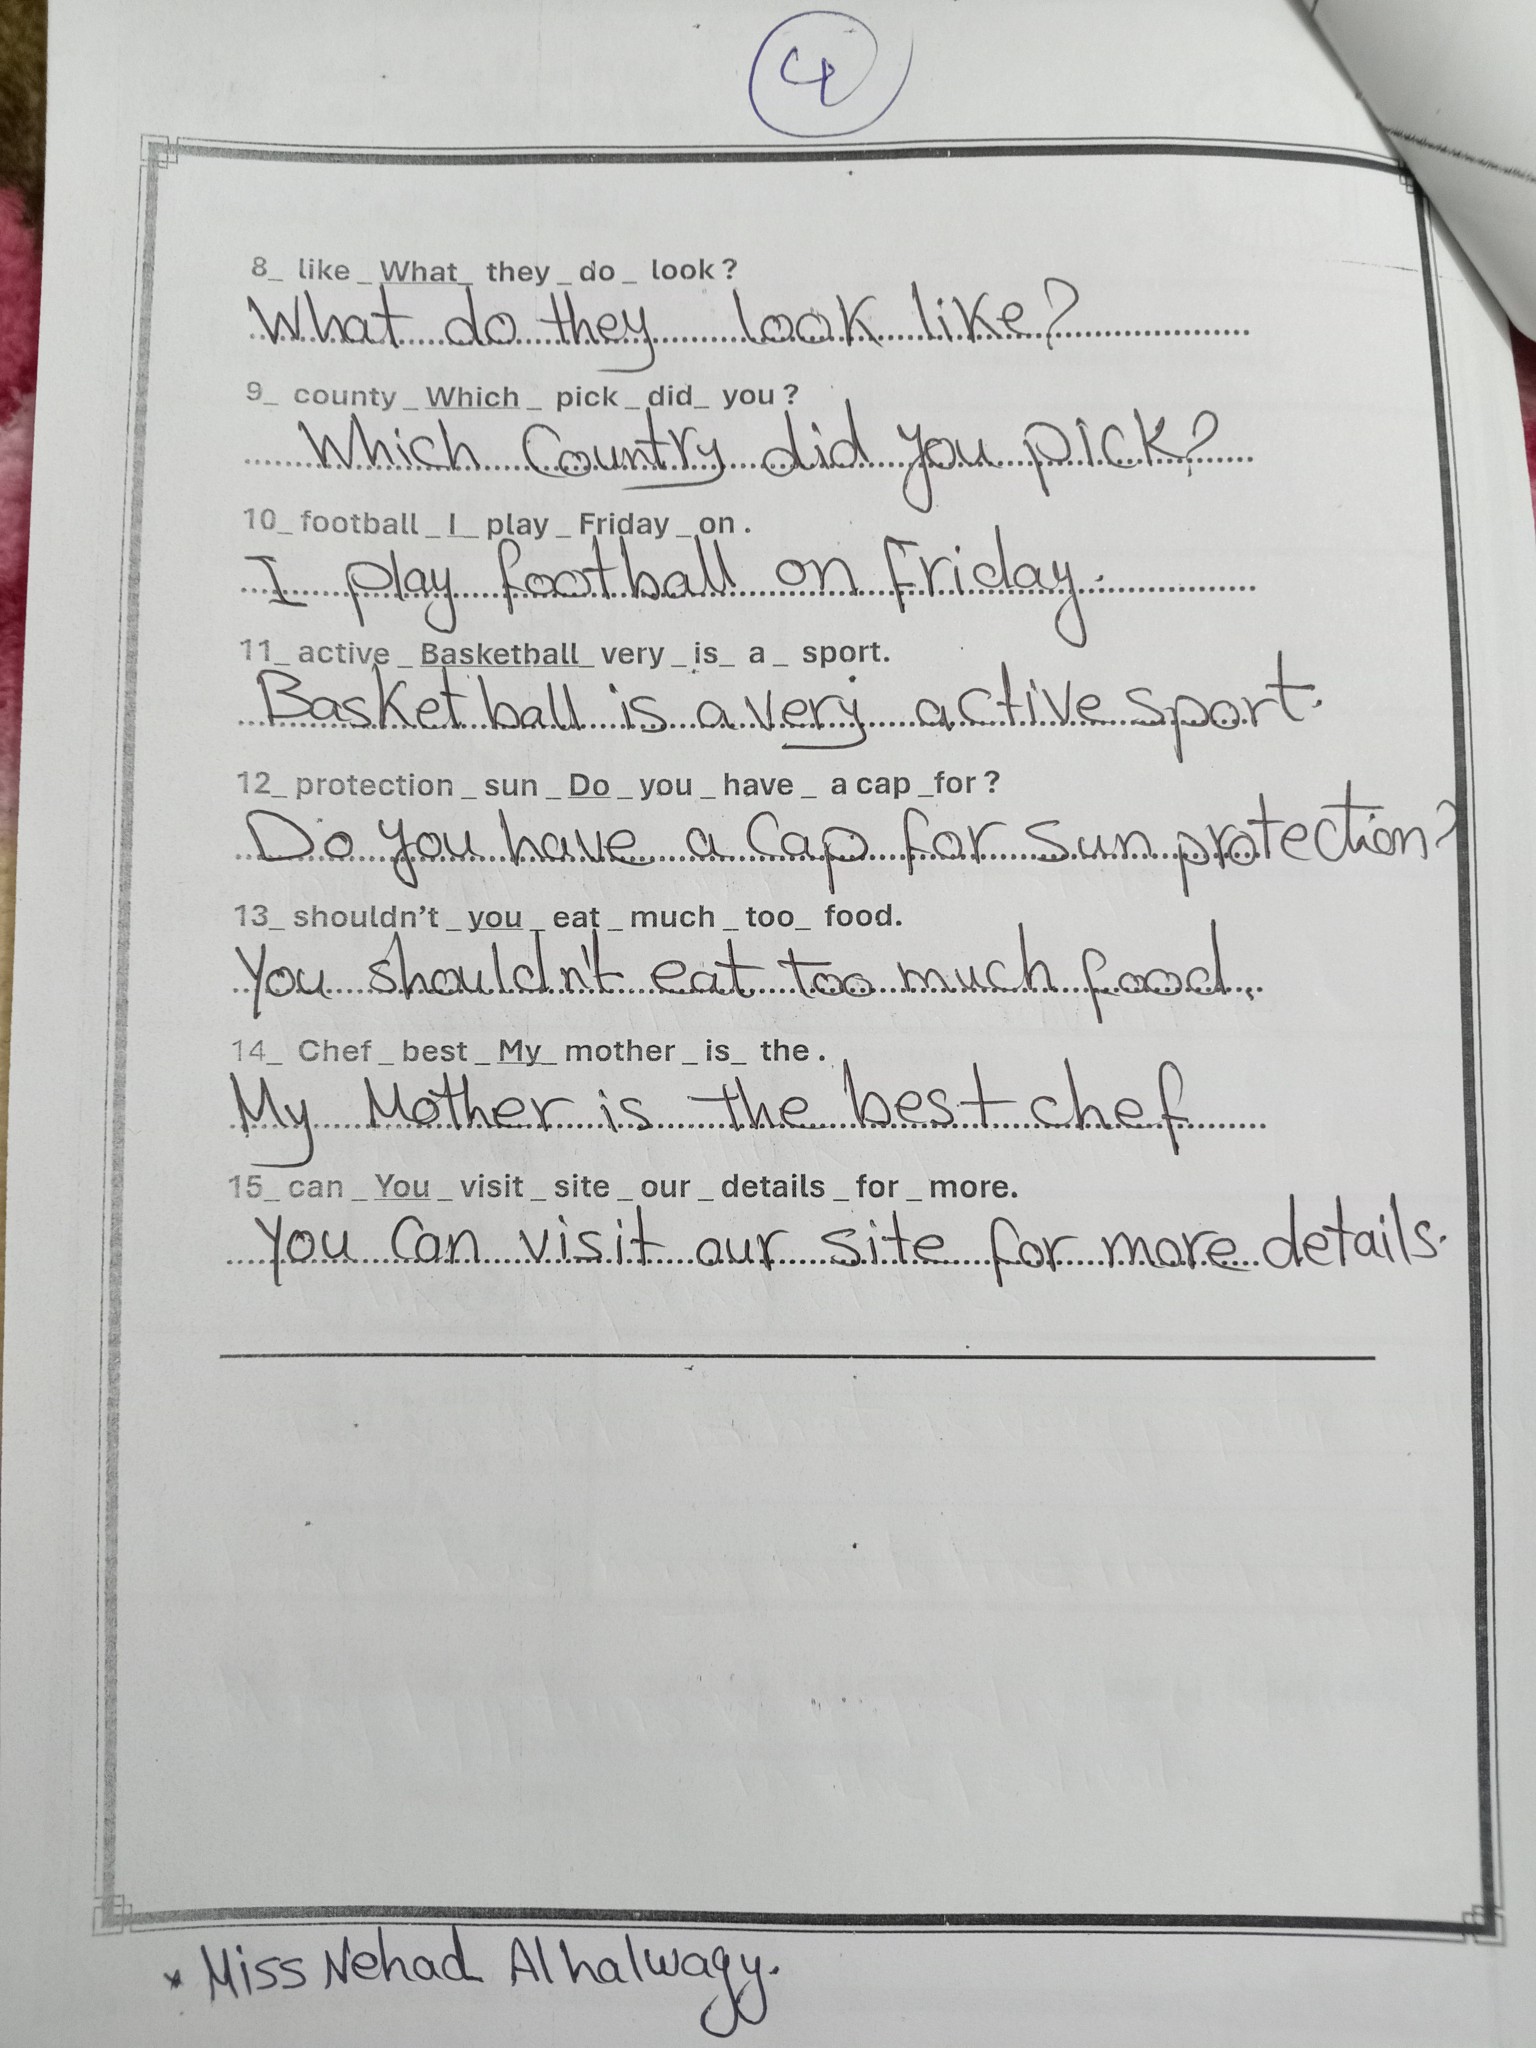 4
8_ like _ What_ they _ do _ look ?
What do they look like?
9_ county _ Which _ pick _ did_ you ?
Which Country did you pick?
10_ football _ I _ play _ Friday _ on .
I play football on Friday.
11_ active _ Basketball_ very _ is_ a _ sport.
Basketball is a very active sport.
12_ protection _ sun _ Do _ you _ have _ a cap _for ?
Do you have a Cap for sun protection?
13_ shouldn't _ you _ eat _ much _ too_ food.
You shouldn't eat too much food.
14_ Chef _ best _ My_ mother _ is_ the .
My Mother is the best chef
15_ can _ You _ visit _ site _ our _ details _ for _ more.
You Can visit our site for more details.
* Miss Nehad Alhalwagy.